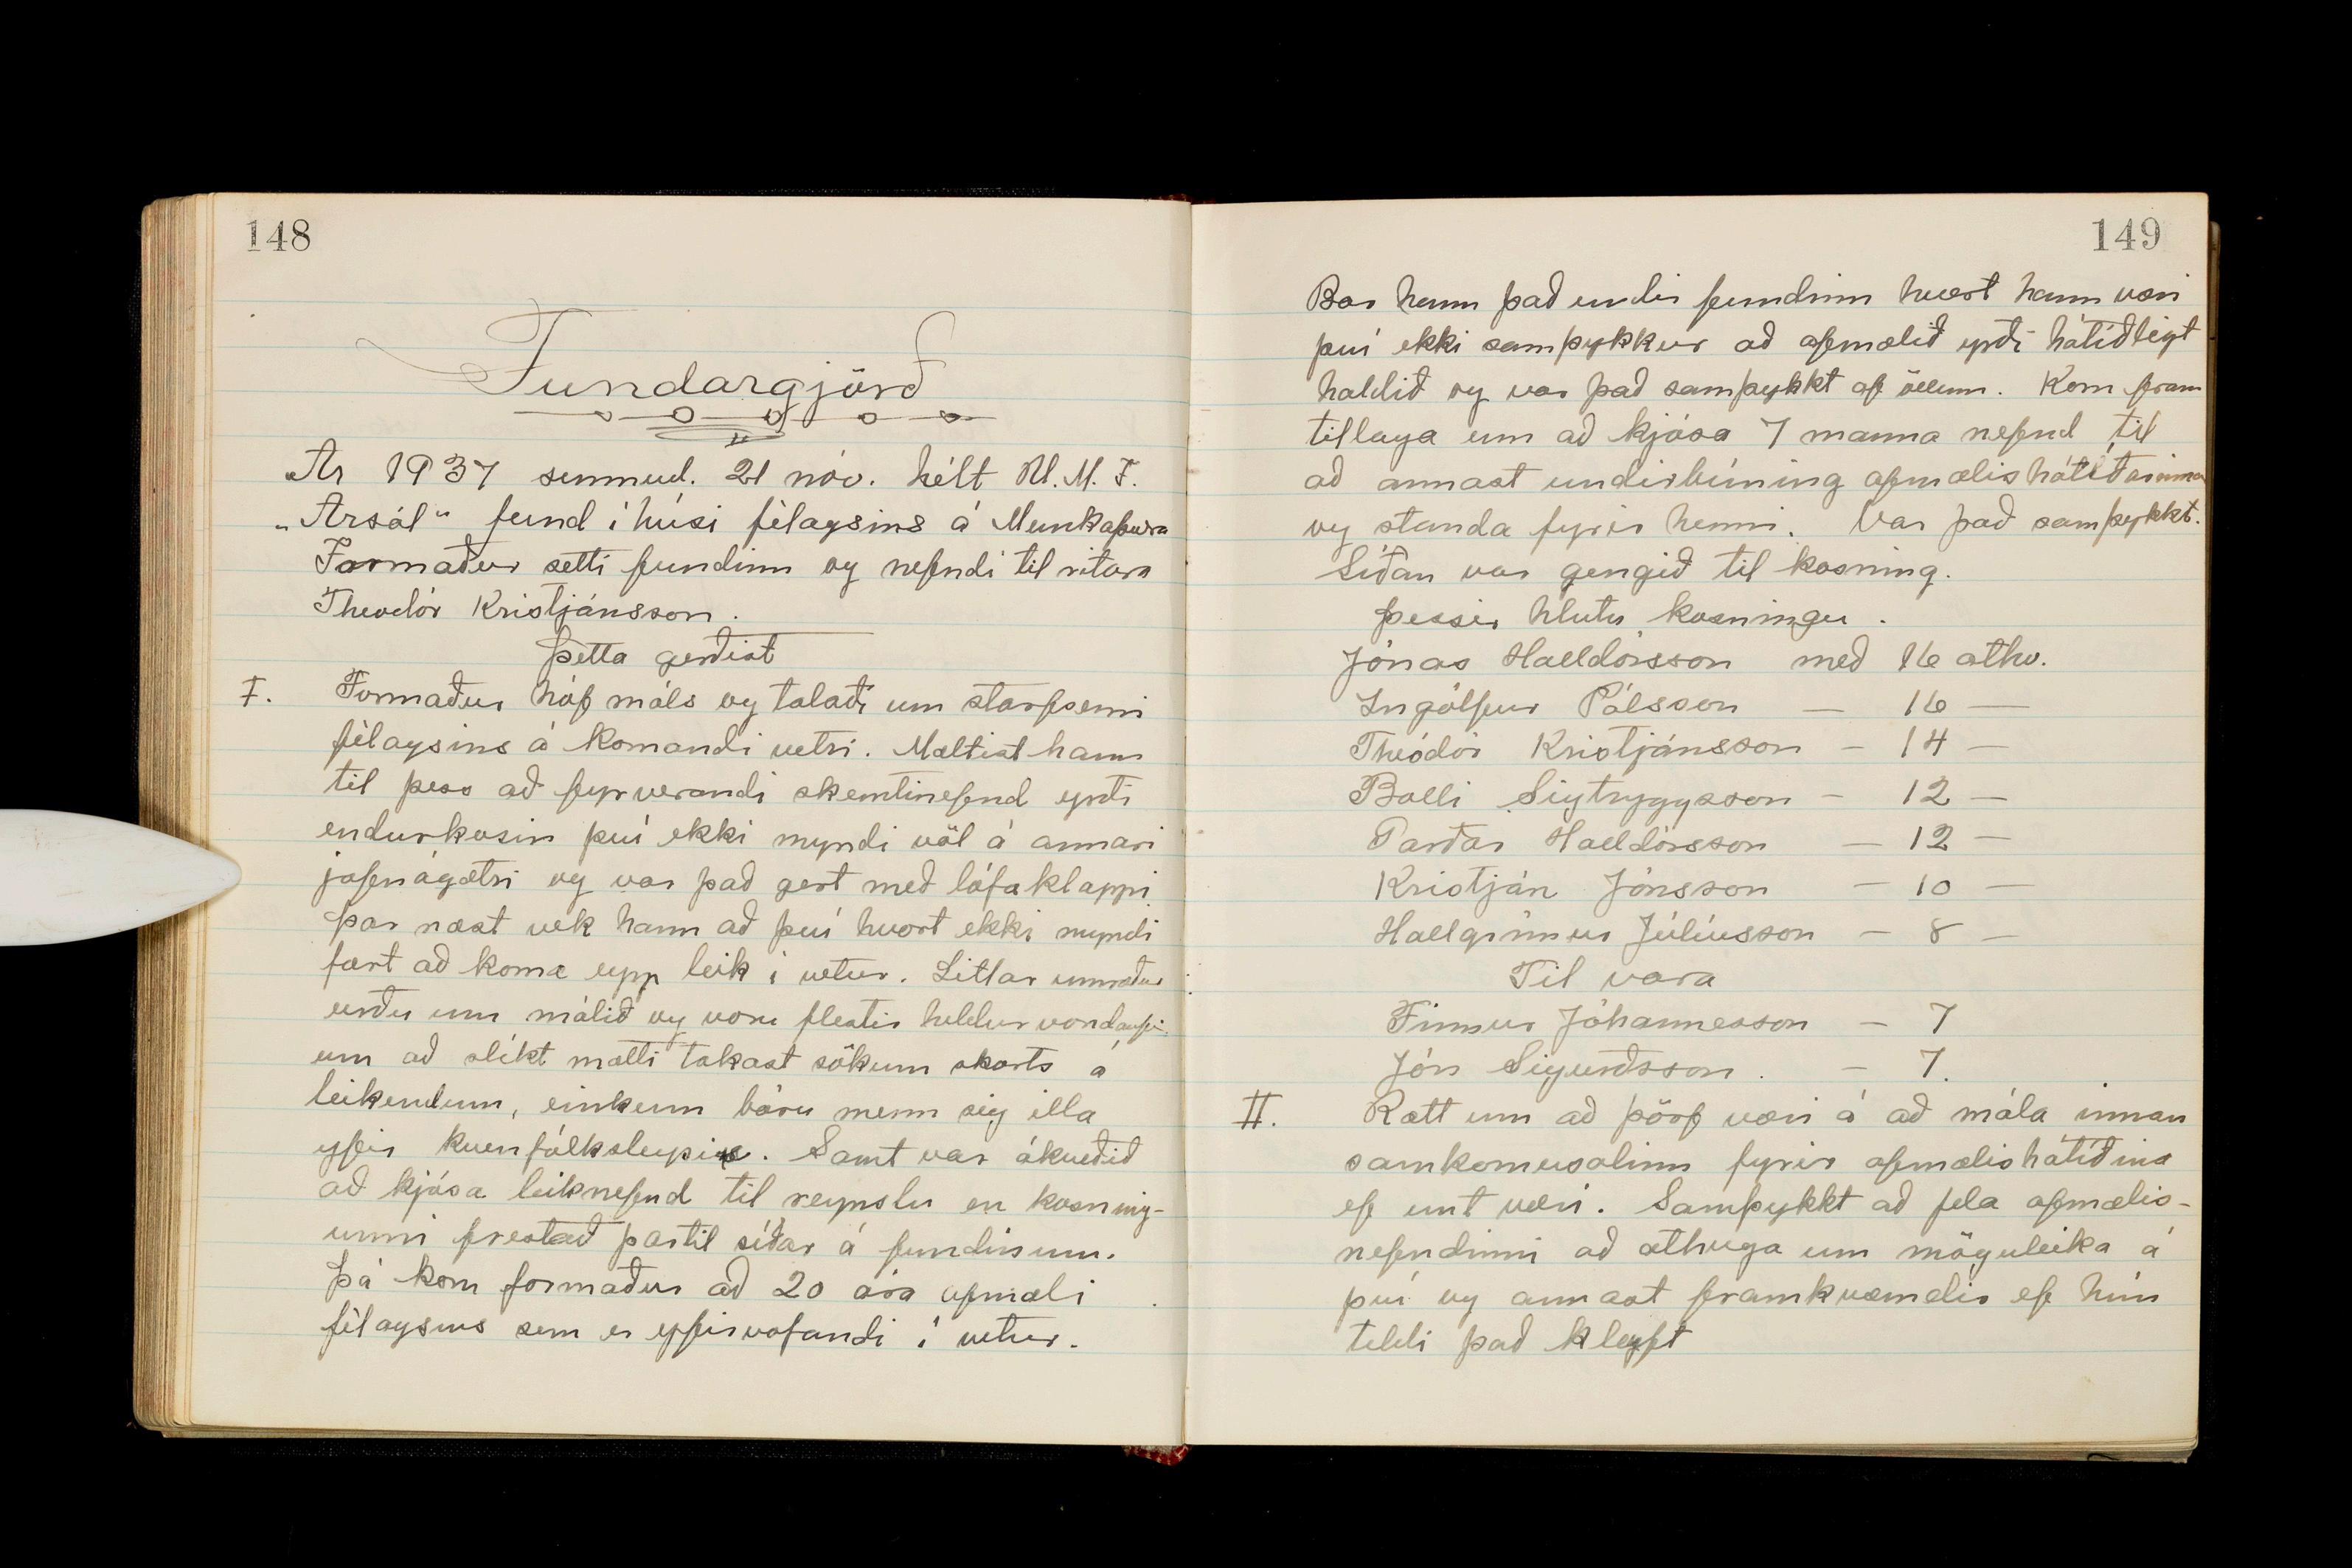 148
Fundargjörð
Ár 1937 sunnud. 21 nóv. hélt U.M.F.
„Ársól“ fund í húsi félagsins á Munkaþverá
Formaður setti fundinn og nefndi til ritara
Theodór Kristjánsson.
Þetta gerðist
I. Formaður hóf máls og talaði um starfsemi
félagsins á komandi vetri. Mæltist hann
til þess að fyrverandi skemtinefnd yrði
endurkosin því ekki myndi völ á annari
jafnágætri og var það gert með lófaklappi.
Þar næst vék hann að því hvort ekki myndi
fært að koma upp leik í vetur. Litlar umræður
urðu um málið og voru flestir heldur vondaufir
um að slíkt mætti takast sökum skorts á
leikendum, einkum báru menn sig illa
yfir kvenfólksleysi. Samt var ákveðið
að kjósa leiknefnd til reynslu en kosning-
unni frestað þar til síðar á fundinum.
Þá kom formaður að 20 ára afmæli
félagsins sem er yfirvofandi í vetur.
149
Bar hann það undir fundinn hvort hann væri
því ekki samþykkur að afmælið yrði hátíðlegt
haldið og var það samþykkt af öllum. Kom fram
tillaga um að kjósa 7 manna nefnd til
að annast undirbúning afmælishátíðarinnar
og standa fyrir henni. Var það samþykkt.
Síðan var gengið til kosning.
Þessir hlutu kosningu.
Jónas Halldórsson með 16 atkv.
Ingólfur Pálsson — 16 —
Theódór Kristjánsson — 14 —
Bolli Sigtryggsson — 12 —
Garðar Halldórsson — 12 —
Kristján Jónsson — 10 —
Hallgrímur Júlíusson — 8 —
Til vara
Finnur Jóhannesson — 7
Jón Sigurðsson. — 7.
II. Rætt um að þörf væri á að mála innan
samkomusalinn fyrir afmælishátíðina
ef unt væri. Samþykkt að fela afmælis-
nefndinni að athuga um möguleika á
því og annast framkvæmdir ef hún
teldi það kleyft